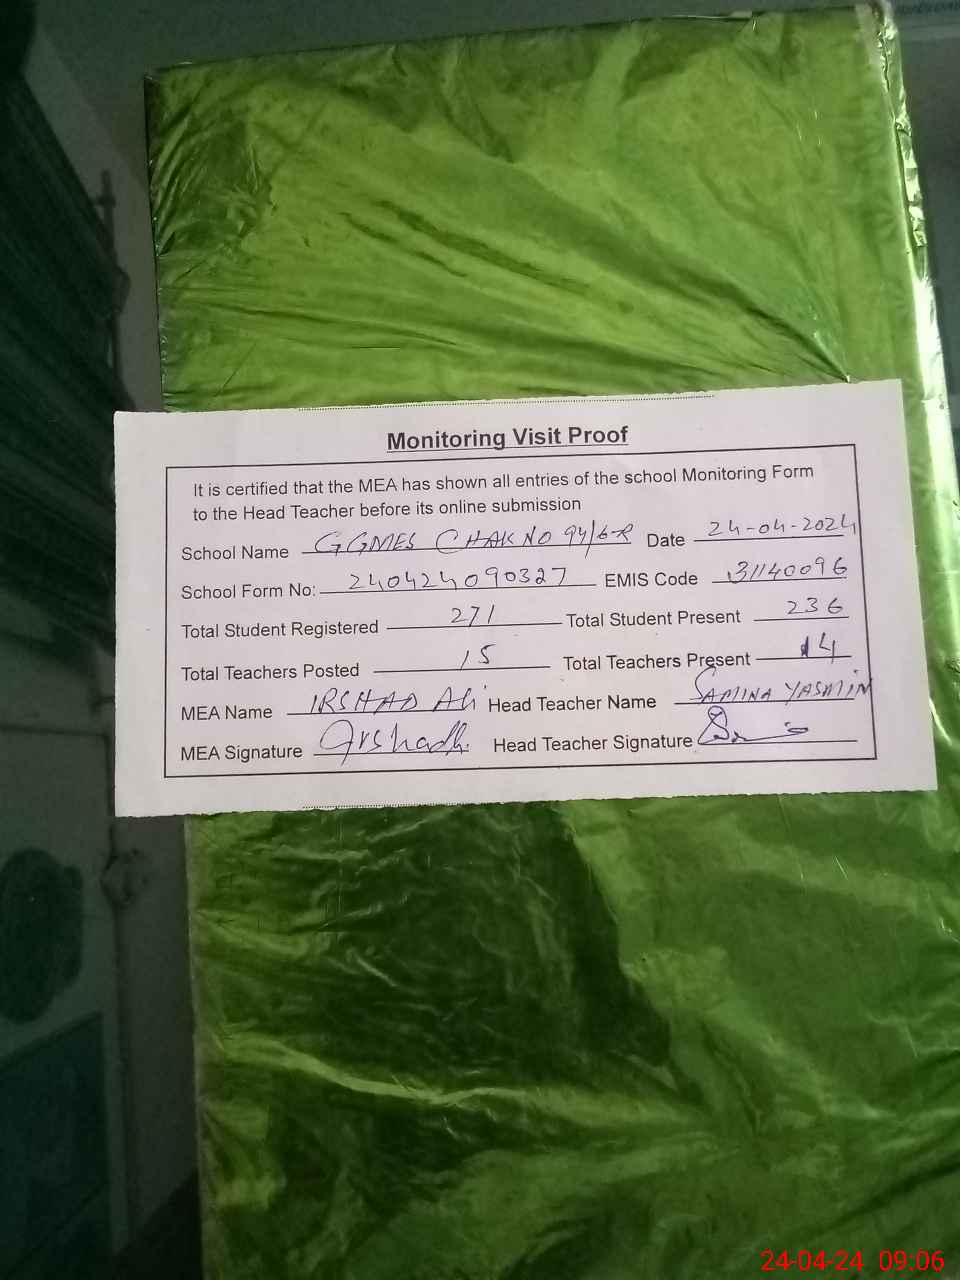 Monitoring Visit Proof
It is certified that the MEA has shown all entries of the school Monitoring Form
to the Head Teacher before its online submission
School Name GGMES CHAK NO 94/6-R Date 24-04-2024
School Form No: 240424090327 EMIS Code 31140096
Total Student Registered 271 Total Student Present 236
Total Teachers Posted 15 Total Teachers Present 14
MEA Name IRSHAD Ali Head Teacher Name SAMINA YASMIN
MEA Signature Head Teacher Signature
24-04-24 09:06